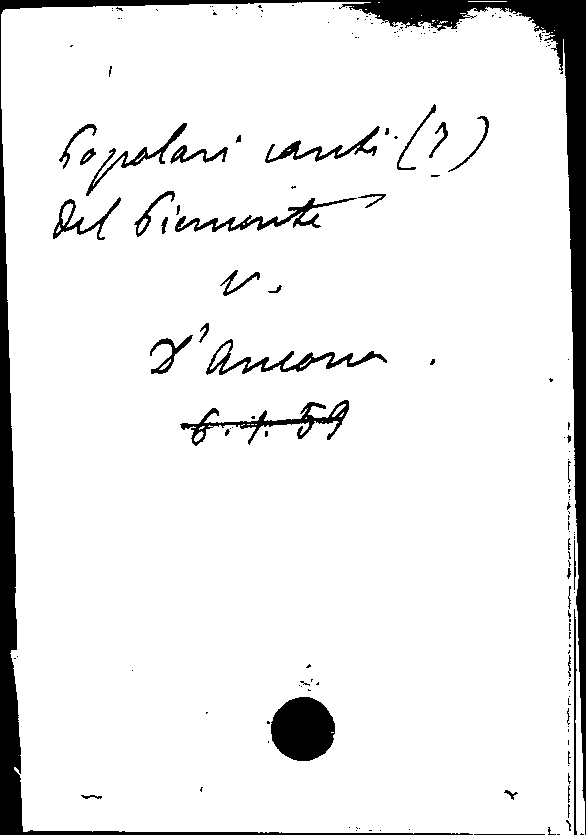 Popolari canti (?)
del Piemonte
v.
D'Ancona.
6. 1. 59